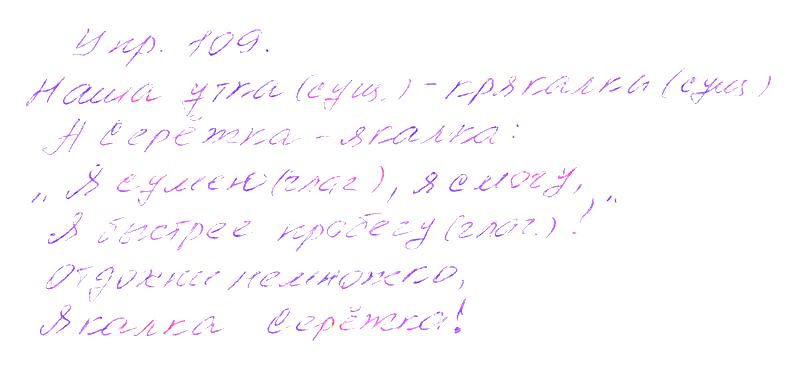 Упр. 109.
Наша утка (сущ.) - крякалка (сущ)
А Серёжка - якалка:
„Я сумею (глаг), я смогу,
Я быстрее пробегу (глаг.)!"
Отдохни немножко,
Якалка Серёжка!